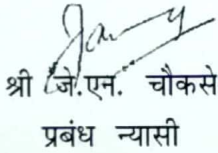 श्री जे.एन. चौकसे
प्रबंध न्यासी